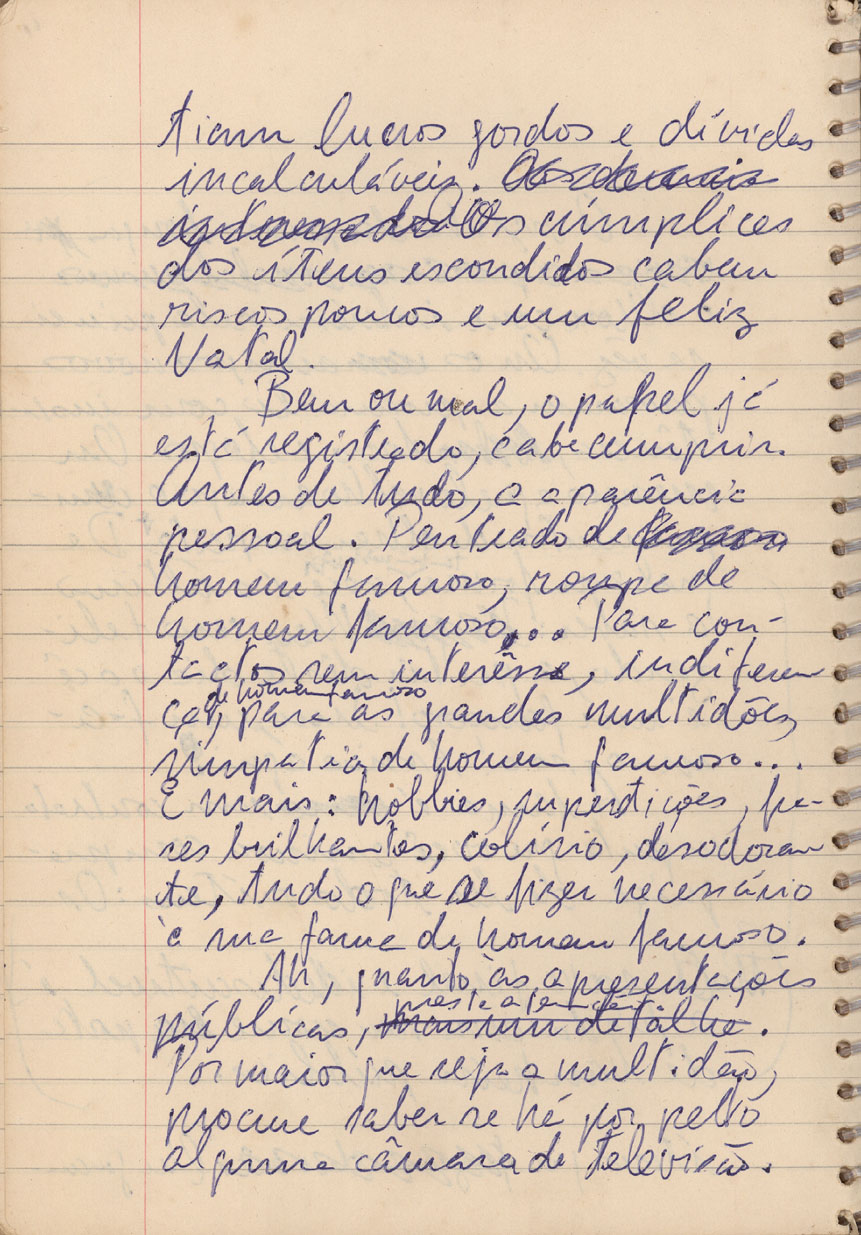 tiam lucros gordos e dívidas
incalculáveis. Os demais
interessados Os cúmplices
dos ítens escondidos cabem
riscos poucos e um feliz
Natal.
Bem ou mal, o papel já
está registrado, cabe cumprir.
Antes de tudo, a aparência
pessoal. Penteado de
homem famoso, roupa de
homem famoso... Para con-
tactos sem interêsse, indiferen
ça de homem famoso, para as grandes multidões,
simpatia de homem famoso...
E mais: hobbies, superstições, fa-
ces brilhantes, colírio, desodoran
te, tudo o que se fizer necessário
à sua fama de homem famoso.
Ah, quanto às apresentações
públicas, mais um detalhe preste atenção.
Por maior que seja a multidão,
procure saber se há por perto
alguma câmara de televisão.